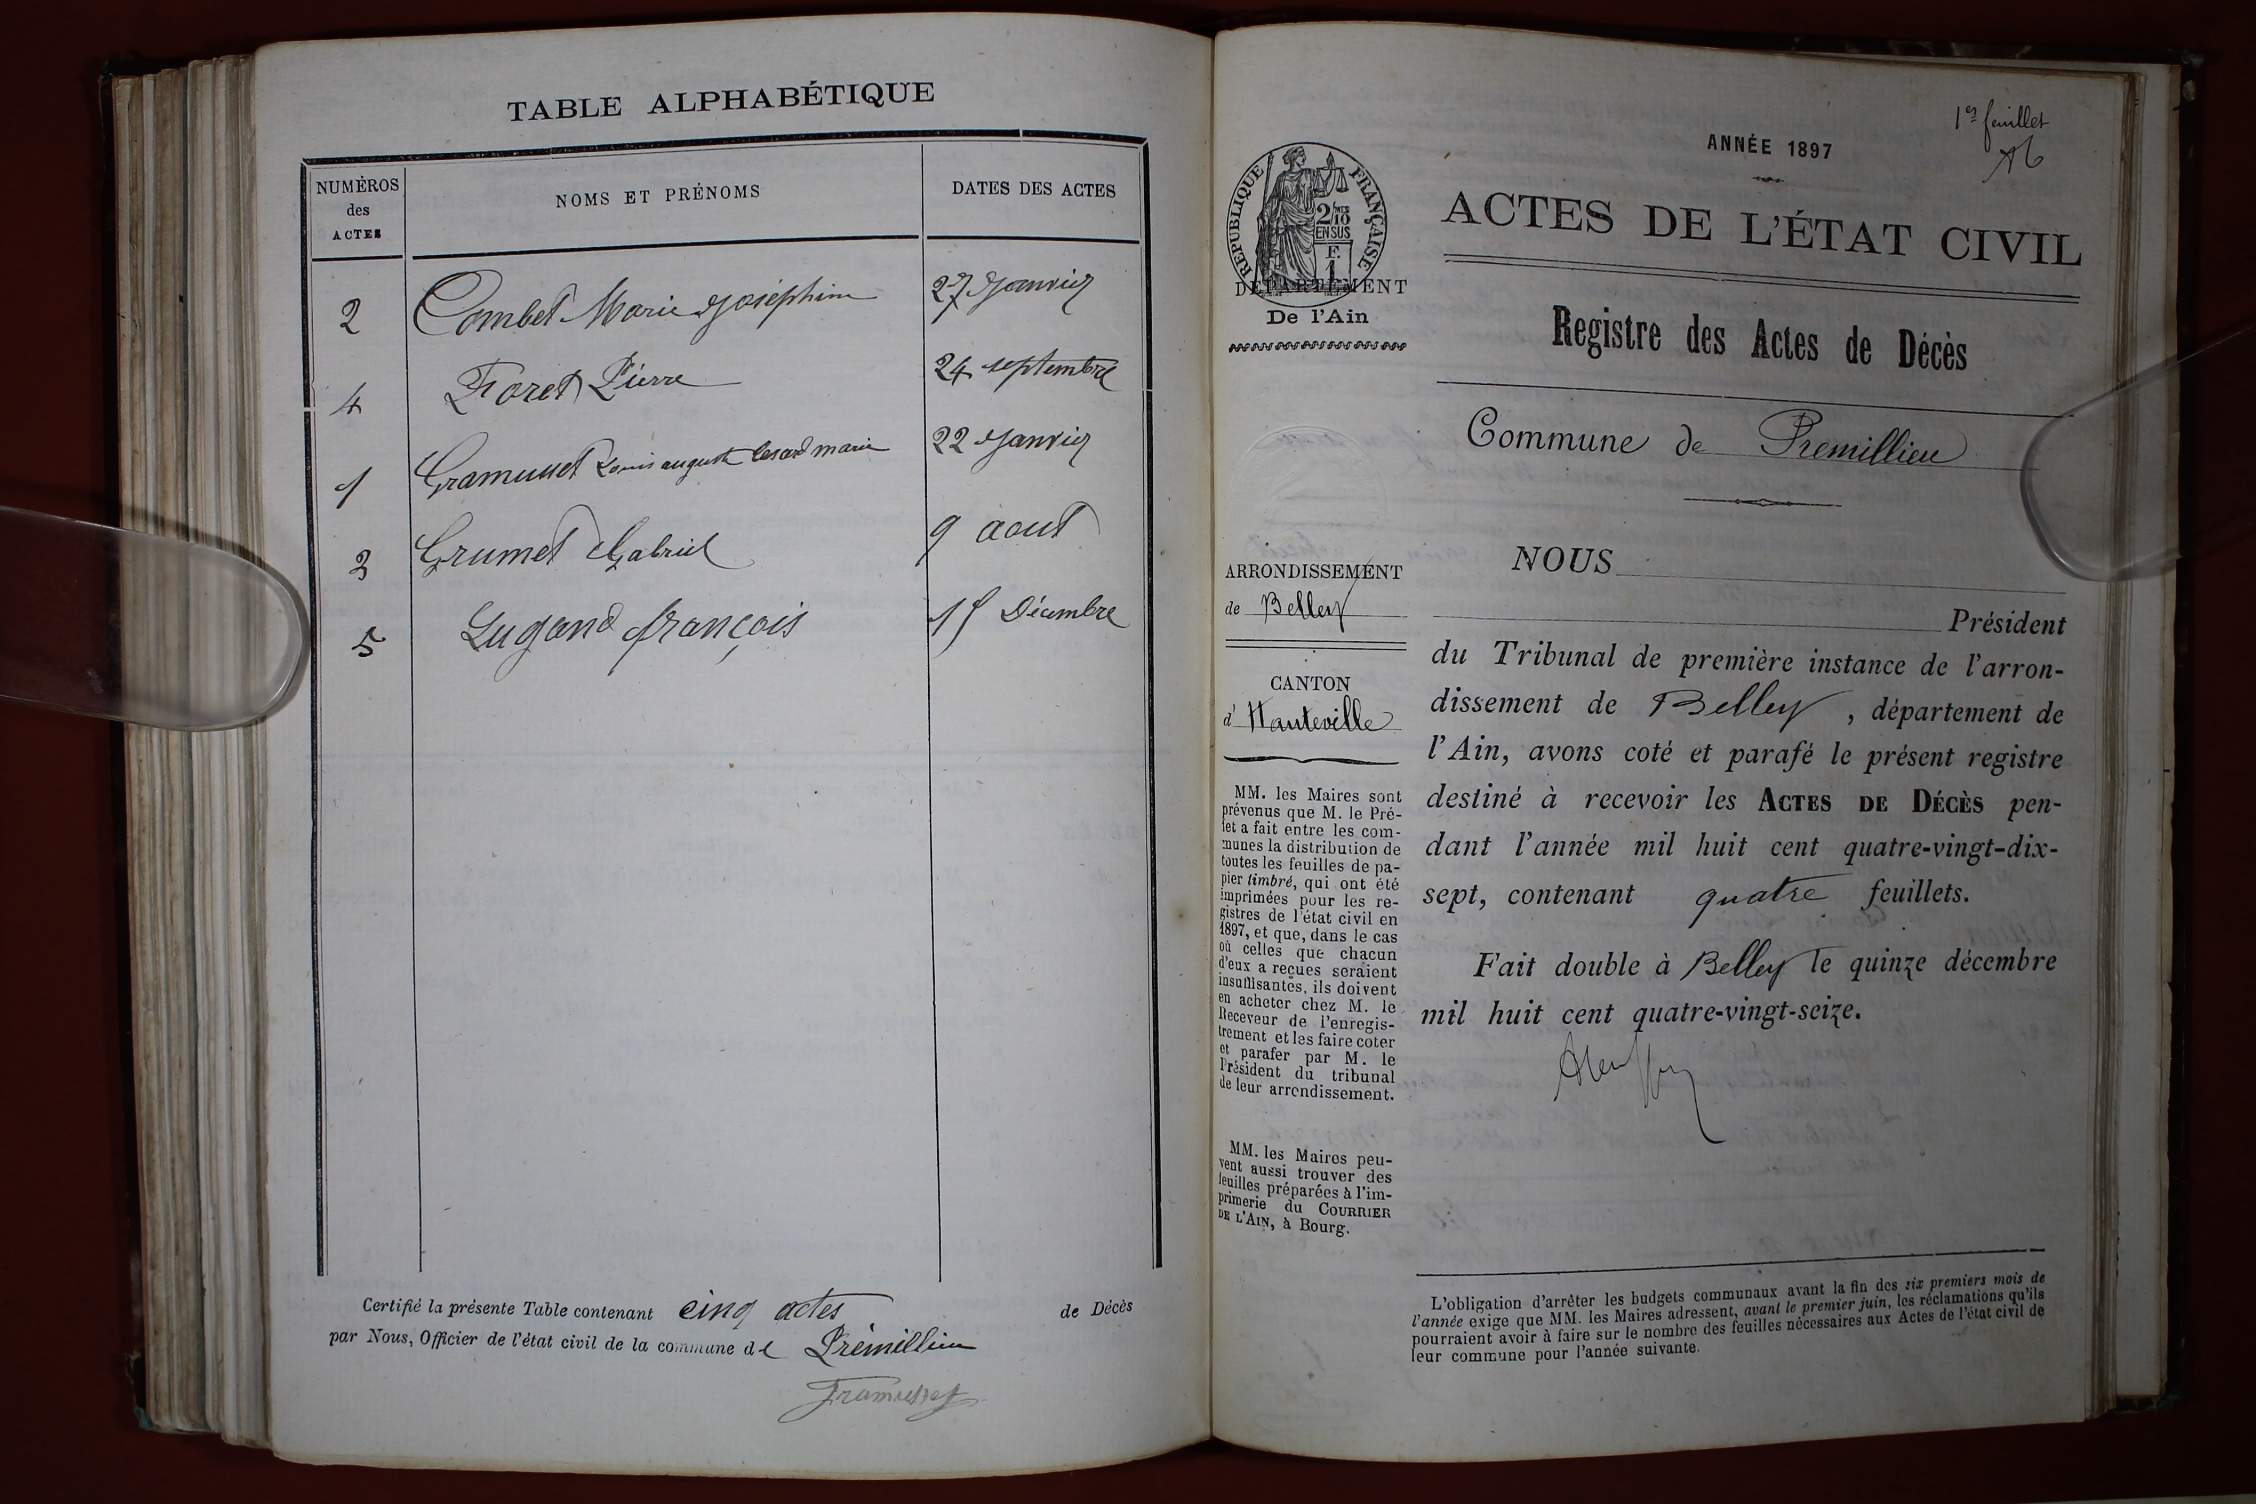 TABLE ALPHABÉTIQUE
NUMÉROS
des
ACTES
NOMS ET PRÉNOMS
DATES DES ACTES
2 Combet Marie Joséphine 27 Janvier
4 Foret Pierre 24 septembre
1 Gramusset Louis auguste marie 22 Janvier
3 Grumet Gabriel 9 aout
5 Lugand françois Décembre
Certifié la présente Table contenant cinq actes de Décès
par Nous, Officier de l'état civil de la commune de Prémillieu
Gramusset
1er feuillet
ANNÉE 1897
RÉPUBLIQUE FRANÇAISE
2/10
EN SUS
F.
1
DÉPARTEMENT
De l'Ain
ACTES DE L'ÉTAT CIVIL
Registre des Actes de Décès
Commune de Premillieu
ARRONDISSEMENT
de Belley
CANTON
d' Hauteville
MM. les Maires sont
prévenus que M. le Pré-
fet a fait entre les com-
munes la distribution de
toutes les feuilles de pa-
pier timbré, qui ont été
imprimées pour les re-
gistres de l'état civil en
1897, et que, dans le cas
où celles que chacun
d'eux a reçues seraient
insuffisantes, ils doivent
en acheter chez M. le
Receveur de l'enregis-
trement et les faire coter
et parafer par M. le
Président du tribunal
de leur arrondissement.
MM. les Maires peu-
vent aussi trouver des
feuilles préparées à l'im-
primerie du COURRIER
DE L'AIN, à Bourg.
NOUS
Président
du Tribunal de première instance de l'arron-
dissement de Belley, département de
l'Ain, avons coté et parafé le présent registre
destiné à recevoir les ACTES DE DÉCÈS pen-
dant l'année mil huit cent quatre-vingt-dix-
sept, contenant quatre feuillets.
Fait double à Belley le quinze décembre
mil huit cent quatre-vingt-seize.
L'obligation d'arrêter les budgets communaux avant la fin des six premiers mois de
l'année exige que MM. les Maires adressent, avant le premier juin, les réclamations qu'ils
pourraient avoir à faire sur le nombre des feuilles nécessaires aux Actes de l'état civil de
leur commune pour l'année suivante.